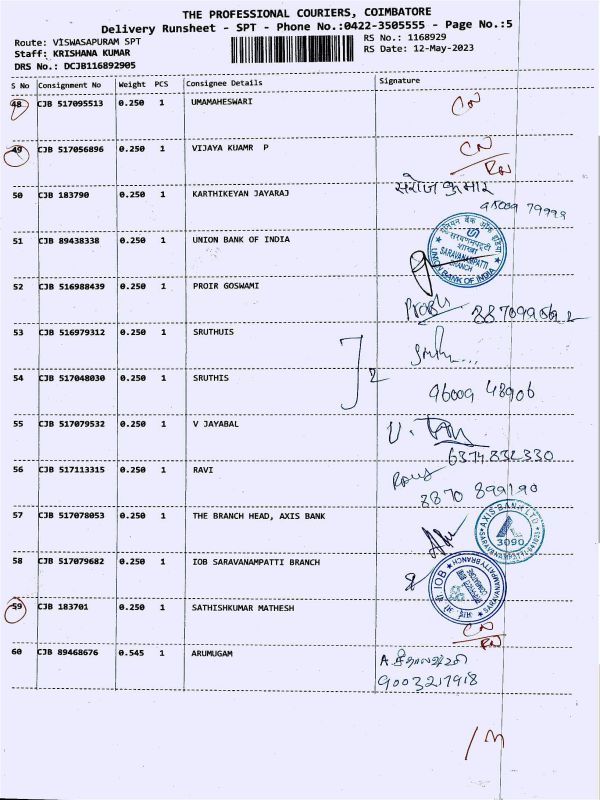 THE PROFESSIONAL COURIERS, COIMBATORE
Delivery Runsheet - SPT - Phone No.:0422-3505555 - Page No.:5
Route: VISWASAPURAM SPT
RS No.: 1168929
Staff: KRISHANA KUMAR
RS Date: 12-May-2023
DRS No.: DCJB116892905
S No Consignment No Weight PCS Consignee Details Signature
48 CJB 517095513 0.250 1 UMAMAHESWARI CN
49 CJB 517056896 0.250 1 VIJAYA KUAMR P CN
RN
50 CJB 183790 0.250 1 KARTHIKEYAN JAYARAJ सरोज कुमार
51 CJB 89438338 0.250 1 UNION BANK OF INDIA
SARAVANAMPATTI
BRANCH
UNION BANK OF INDIA
52 CJB 516988439 0.250 1 PROIR GOSWAMI
53 CJB 516979312 0.250 1 SRUTHUIS
54 CJB 517048030 0.250 1 SRUTHIS 2
96009 48906
55 CJB 517079532 0.250 1 V JAYABAL
6374832330
56 CJB 517113315 0.250 1 RAVI
8870 899190
57 CJB 517078053 0.250 1 THE BRANCH HEAD, AXIS BANK
AXIS BANK LTD
3090
58 CJB 517079682 0.250 1 IOB SARAVANAMPATTI BRANCH
IOB
59 CJB 183701 0.250 1 SATHISHKUMAR MATHESH
CN
RN
60 CJB 89468676 0.545 1 ARUMUGAM
9003217918